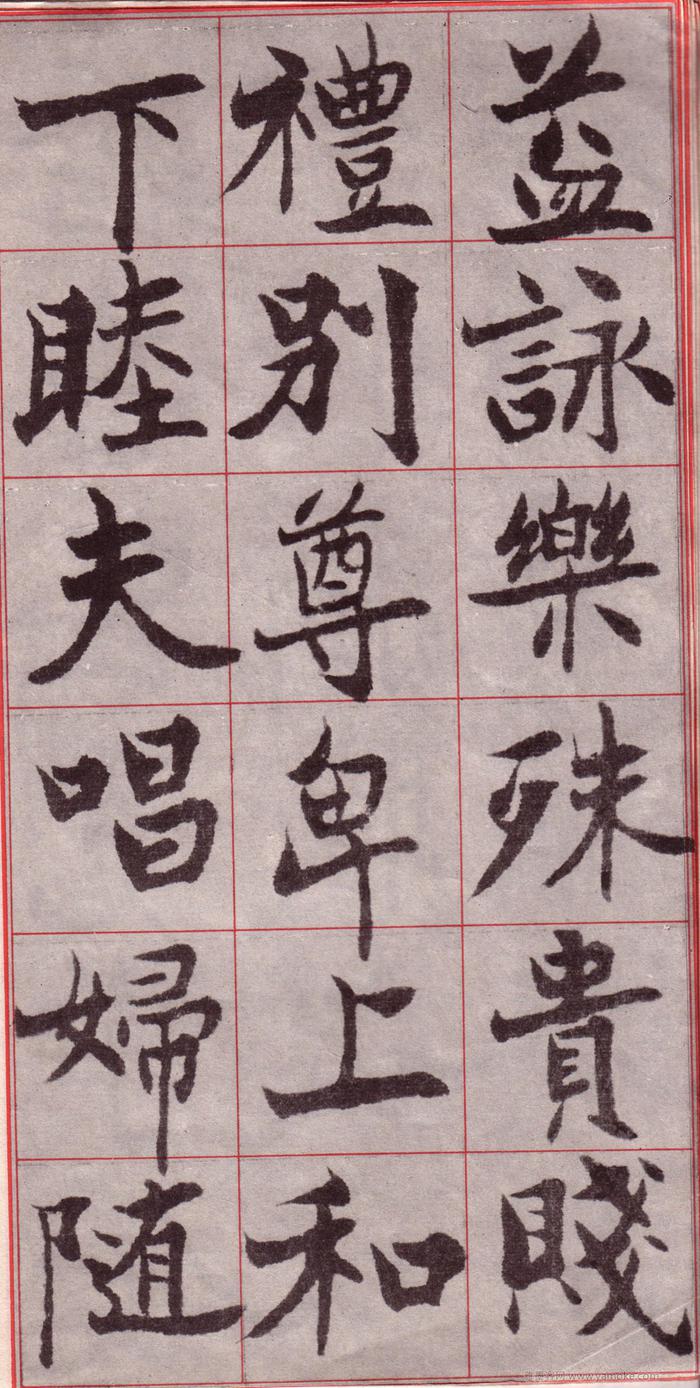 益詠樂殊貴賤
禮別尊卑上和
下睦夫唱婦隨
www.yamoke.com